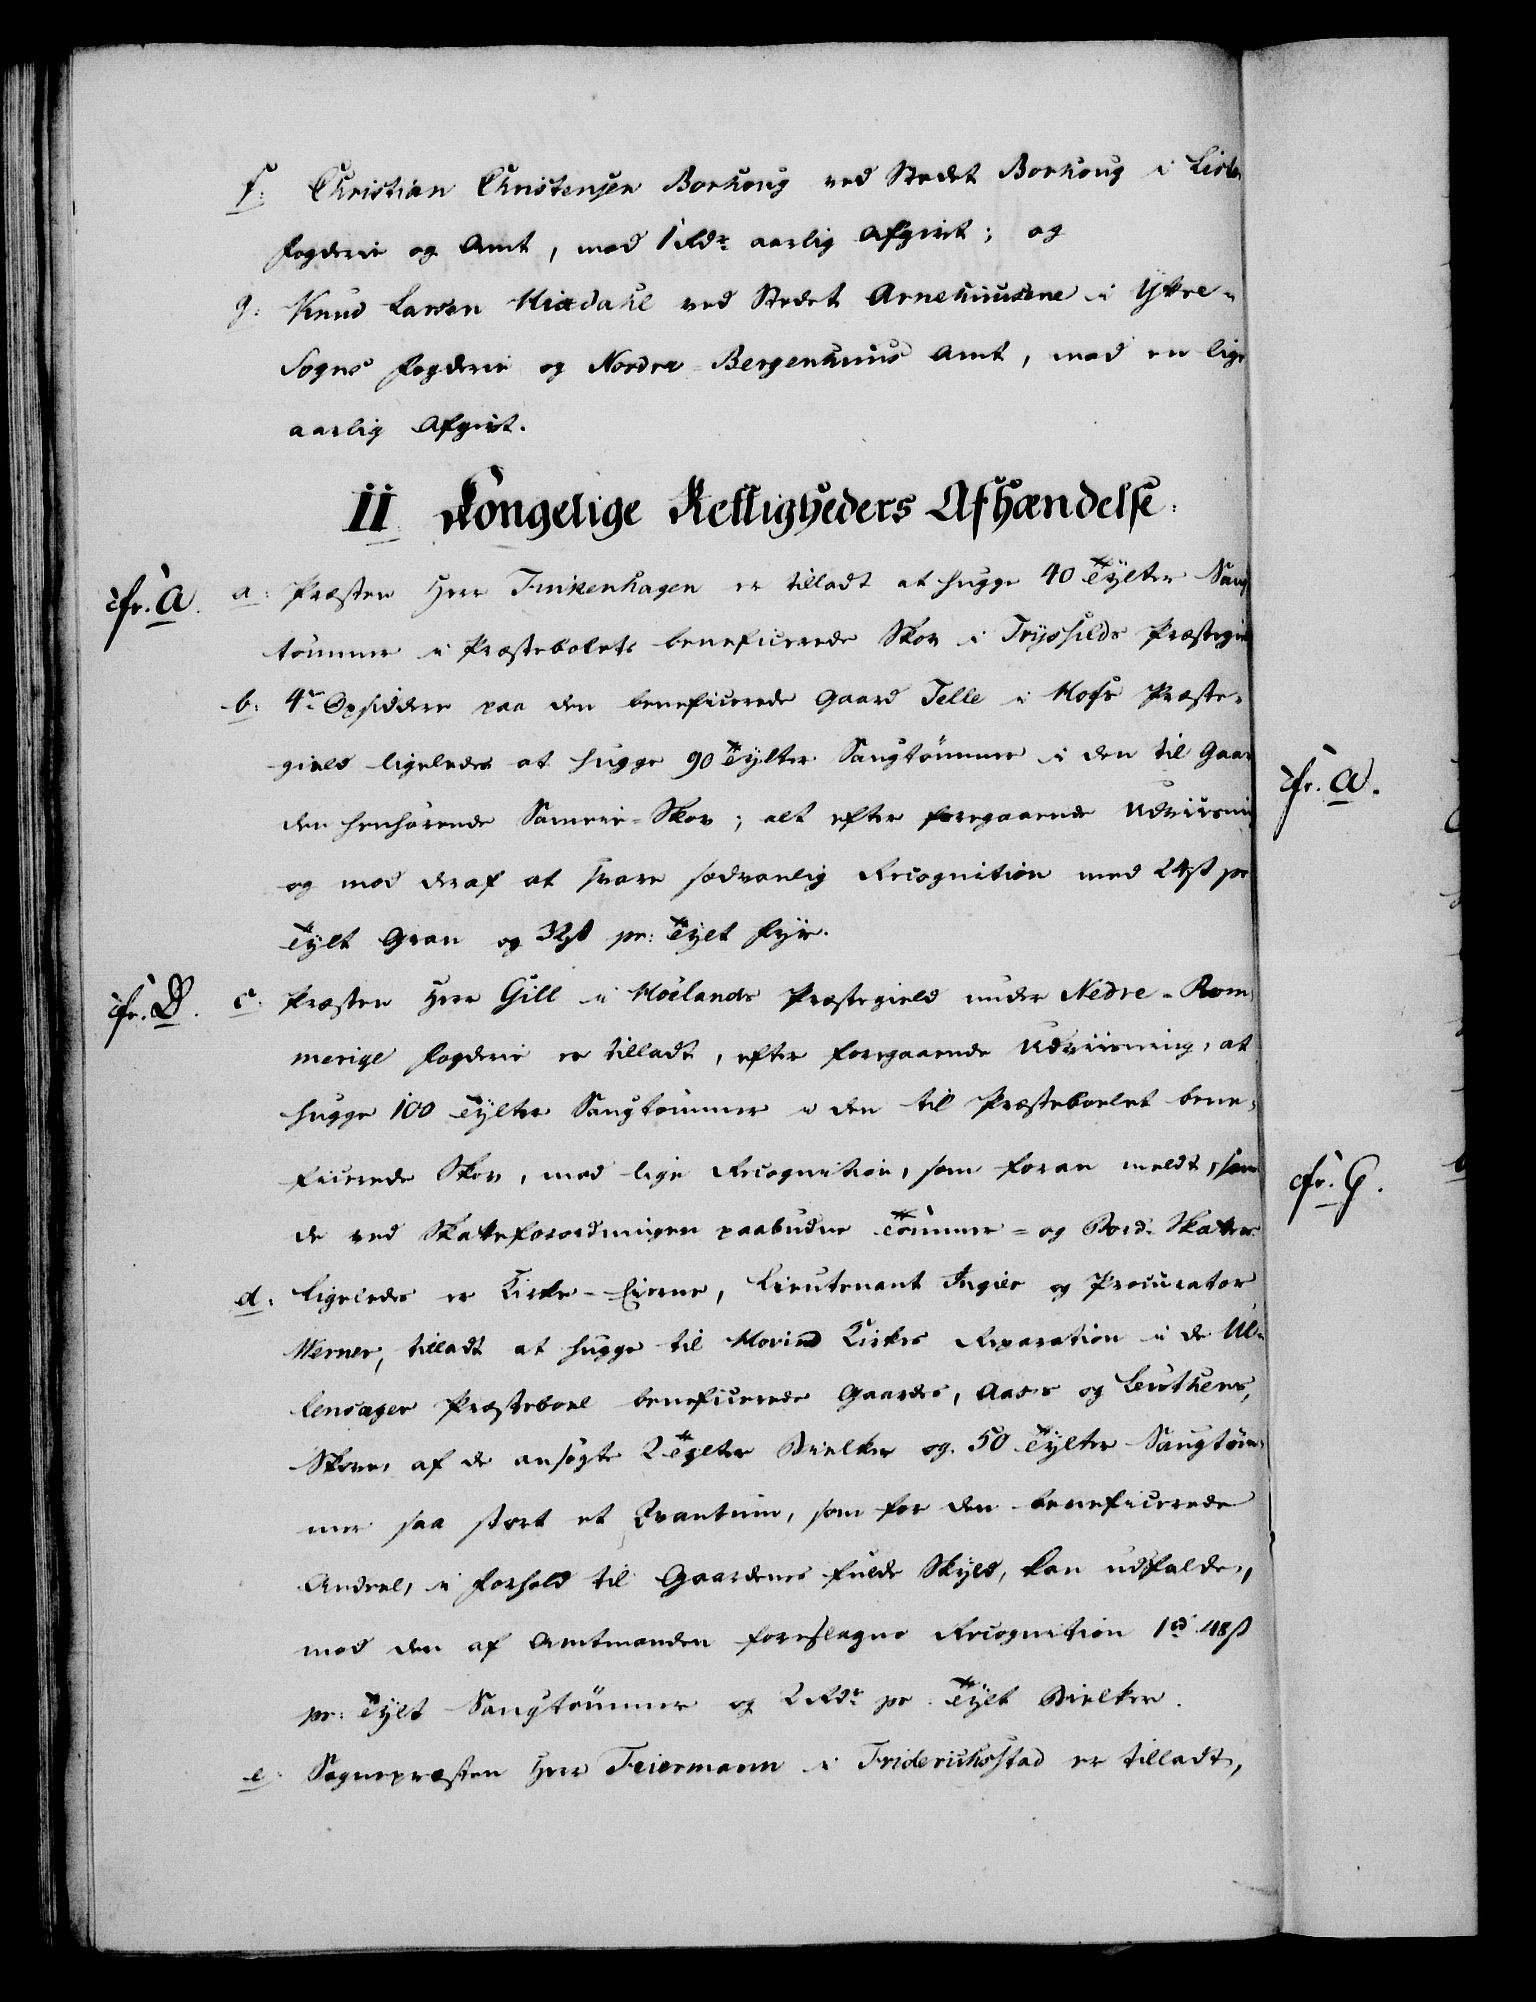 f: Christian Christensen Borhoug ved Stedet Borhoug i Liste
Fogderie og Amt, mod 1 Rdr aarlig Afgivt; og
g: Knud Larsen Miædahl ved Stedet Arnehuusene i Yttre-
Sogns Fogderie og Nordre Bergenhuus Amt, mod en lige
aarlig Afgivt.
II Kongelige Rettigheders Afhændelse.
cfr. A. a: Præsten Herr Finkenhagen er tilladt at hugge 40 Tylter Saug
tømmer i Præstebolets beneficerede Skov i Tryssilds Præstegie
b: 4re Opsiddere paa den beneficerede Gaard Telle i Moss Præste-
gield ligeledes at hugge 90 Tylter Saugtømmer i den til Gaar
den henhørende Sameie-Skov; alt efter foregaaende Udviisni
og mod deraf at svare sædvanlig Recognition med 24 ß pr
Tylt Gran og 32 ß pr: Tylt Fyr.
cfr. B. c: Præsten Herr Gill i Høelands Præstegield under Nedre-Rom
merige Fogderie er tilladt, efter foregaaende Udviisning, at
hugge 100 Tylter Saugtømmer i den til Præsteboelet bene-
ficerede Skov, mod lige Recognition, som foran meldt, sam
de ved Skatteforordningen paabudne Tømmer- og Bord-Skatter.
d: Ligeledes er Kirke-Eierne, Lieutenant Ingier og Procurator
Werner, tilladt at hugge til Hovind Kirkes Reparation i de Ul-
lensager Præsteboel beneficerede Gaardes, Aas's og Leuthens,
Skove, af de ansøgte 2 Tylter Bielker og 50 Tylter Saugtøm-
mer saa stort et Qvantum, som for den beneficerede
Andeel, i Forhold til Gaardenes fulde Skyld, kan udfalde,
mod den af Amtmanden foreslagne Recognition 1 rd 48 ß
pr: Tylt Saugtømmer og 2 Rdr pr. Tylt Bielker.
e: Sognepræsten Herr Feiermann i Friderichsstad er tilladt,
cfr. A.
cfr. G.